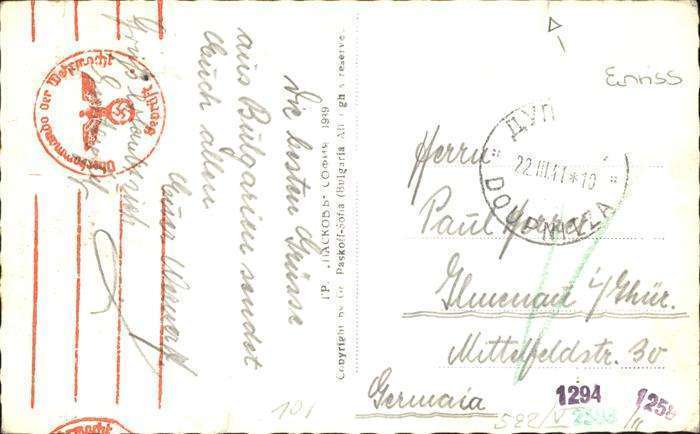 Die besten Grüsse
aus Bulgarien sendet
Euch allen
Euer
Гр. Пасковъ София 1939
Copyright by Gr. Paskoff-Sofia (Bulgaria All rights reserve
Oberkommando der Wehrmacht
Geprüft
Einriss
ДУП
22.III.41*10
DOUPNITZA
Herrn
Paul
Ilmenau i/Thür.
Mittelfeldstr. 30
Germaia
1294
1258
101